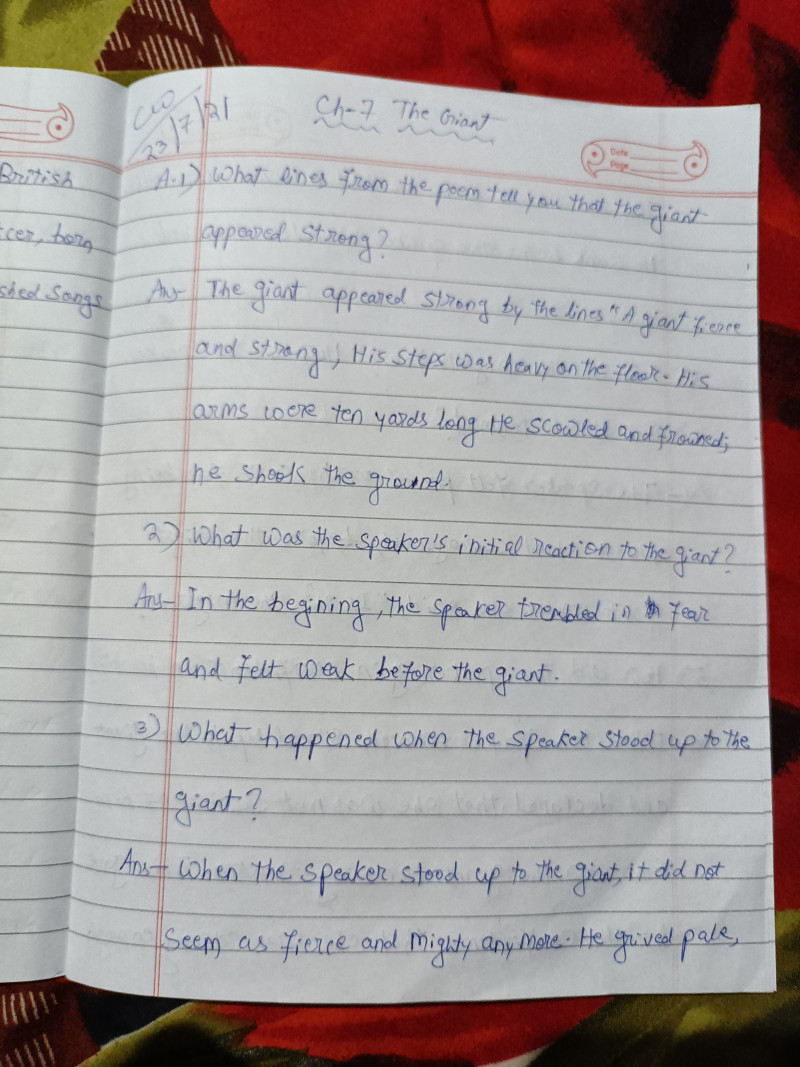 British
cer, born
shed Songs
CW
23/7/21
Ch-7 The Giant
Date
Page
A.1) What lines from the poem tell you that the giant
appeared strong?
Ans- The giant appeared strong by the lines "A giant fierce
and strong, His steps was heavy on the floor. His
arms were ten yards long He scowled and frowned;
he shook the ground.
2) What was the speaker's initial reaction to the giant?
Ans- In the begining, the speaker trembled in fear
and felt weak before the giant.
3) What happened when the speaker stood up to the
giant?
Ans- When the speaker stood up to the giant, it did not
seem as fierce and mighty any more. He grived pale,